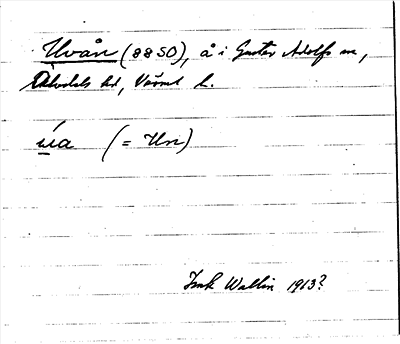 Uvån (8850), å i Gustav Adolfs sn,
Älvdals hd, Värml l.
úa (= Un)
Ink Wallin 1913?